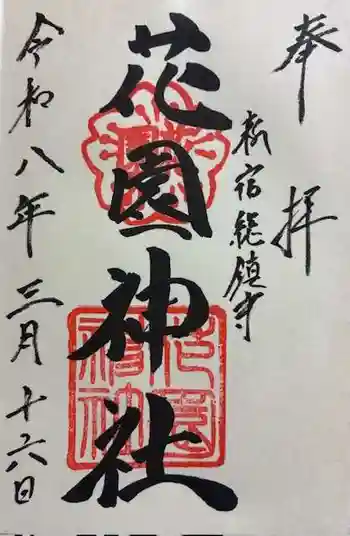 奉拝
新宿総鎮守
花園神社
令和八年三月十六日